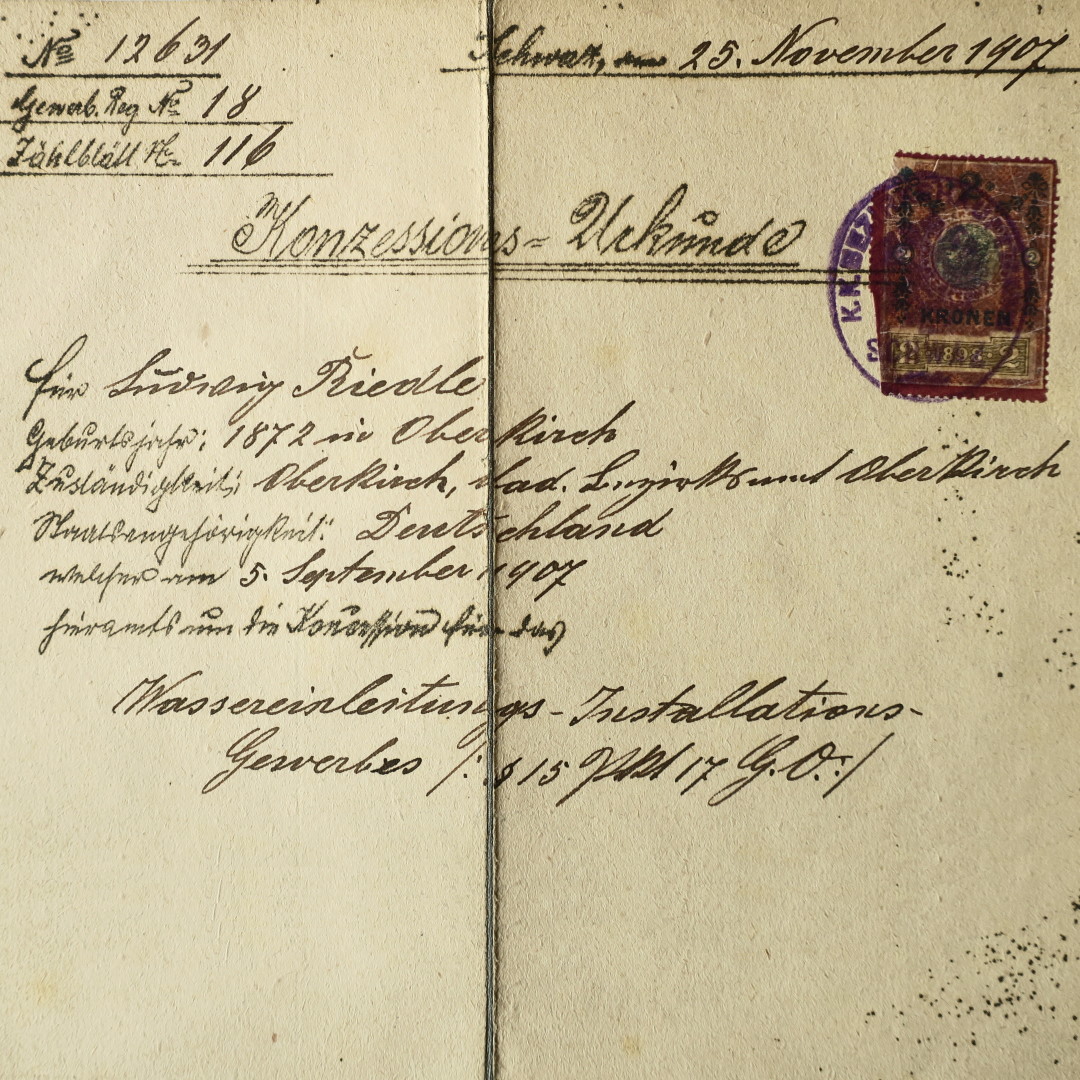 No 12631
Schwaz, am 25. November 1907
Gewerb. Reg No 18
Zählblatt No 116
Konzessions-Urkunde
für Ludwig Riedle
Geburtsjahr: 1872 in Oberkirch
Zuständigkeit: Oberkirch, bad. Bezirksamt Oberkirch
Staatsangehörigkeit: Deutschland
welcher am 5. September 1907
hieramts um die Konzession für das
Wassereinleitungs-Installations-
Gewerbes /: § 15 Pkt 17 G.O. :/
K.K.
2
2 2
KRONEN
1898 2